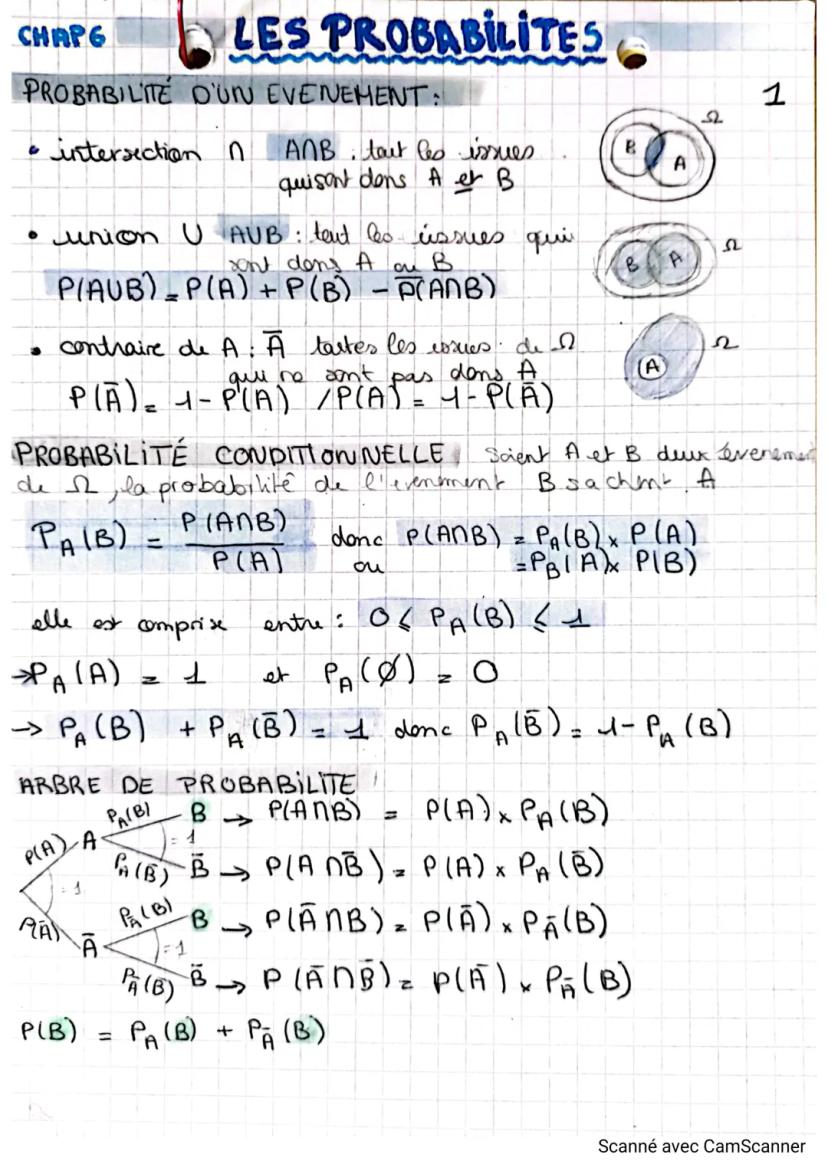 CHAP 6 LES PROBABILITES
PROBABILITÉ D'UN EVENEMENT : 1
• intersection ∩ A∩B : tout les issues
qui sont dans A et B
B A Ω
• union U AUB : tout les issues qui
sont dans A ou B
B A Ω
P(AUB) = P(A) + P(B) - P(A∩B)
• contraire de A : Ā toutes les issues de Ω
qui ne sont pas dans A
A Ω
P(Ā) = 1 - P(A) / P(A) = 1 - P(Ā)
PROBABILITÉ CONDITIONNELLE Soient A et B deux évenemen
de Ω, la probabilité de l'evenement B sachant A
P_A(B) = P(A∩B) / P(A) donc P(A∩B) = P_A(B) × P(A)
ou = P_B(A) × P(B)
elle est comprise entre : 0 ⩽ P_A(B) ⩽ 1
→ P_A(A) = 1 et P_A(Ø) = 0
→ P_A(B) + P_A(B̄) = 1 donc P_A(B̄) = 1 - P_A(B)
ARBRE DE PROBABILITE
P(A) A P_A(B) B → P(A∩B) = P(A) × P_A(B)
= 1
P_A(B̄) B̄ → P(A∩B̄) = P(A) × P_A(B̄)
= 1
P(Ā) Ā P_Ā(B) B → P(Ā∩B) = P(Ā) × P_Ā(B)
= 1
P_Ā(B̄) B̄ → P(Ā∩B̄) = P(Ā) × P_Ā(B)
P(B) = P_A(B) + P_Ā(B)
Scanné avec CamScanner